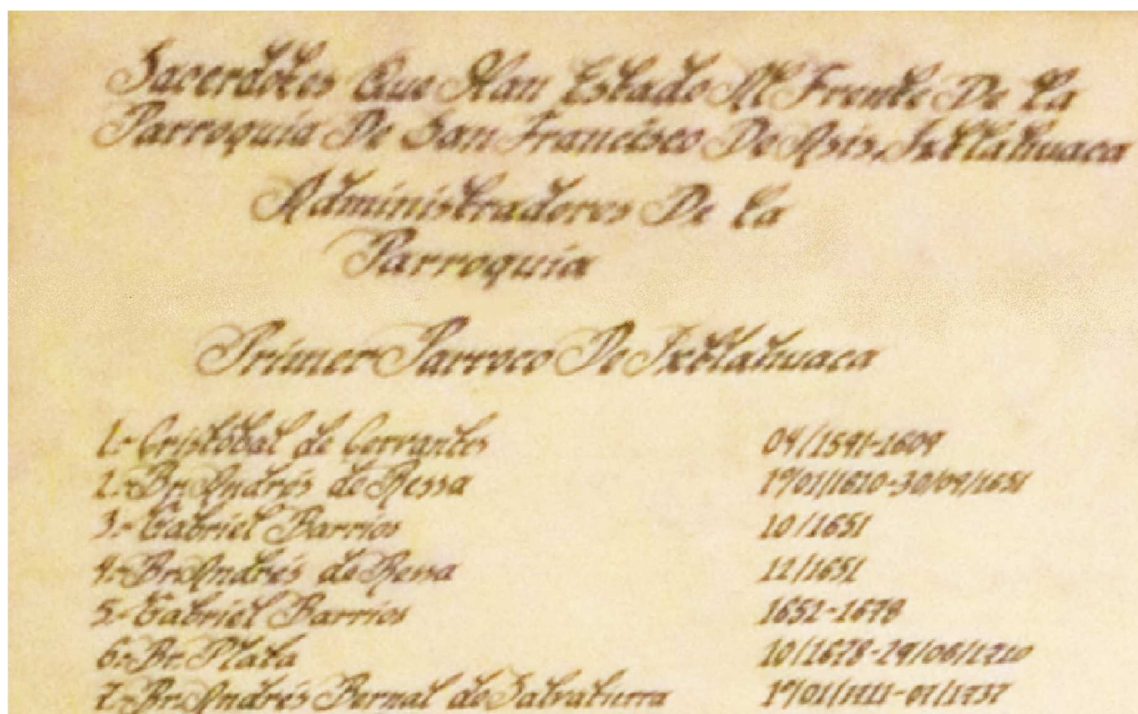 Sacerdotes Que Han Estado Al Frente De La
Parroquia De San Francisco De Asis, Ixtlahuaca
Administradores De La
Parroquia
Primer Parroco De Ixtlahuaca
1.- Cristóbal de Cervantes 04/1591-1609
2.- Br. Andrés de 1º/01/1610-30/09/1651
3.- Gabriel Barrios 10/1651
4.- Br. Andrés de 12/1651
5.- Gabriel Barrios 1652-1678
6.- Br. Plata 10/1678-29/08/1710
7.- Br. Andrés Bernal de Salvaturra 1º/01/1711-07/1737